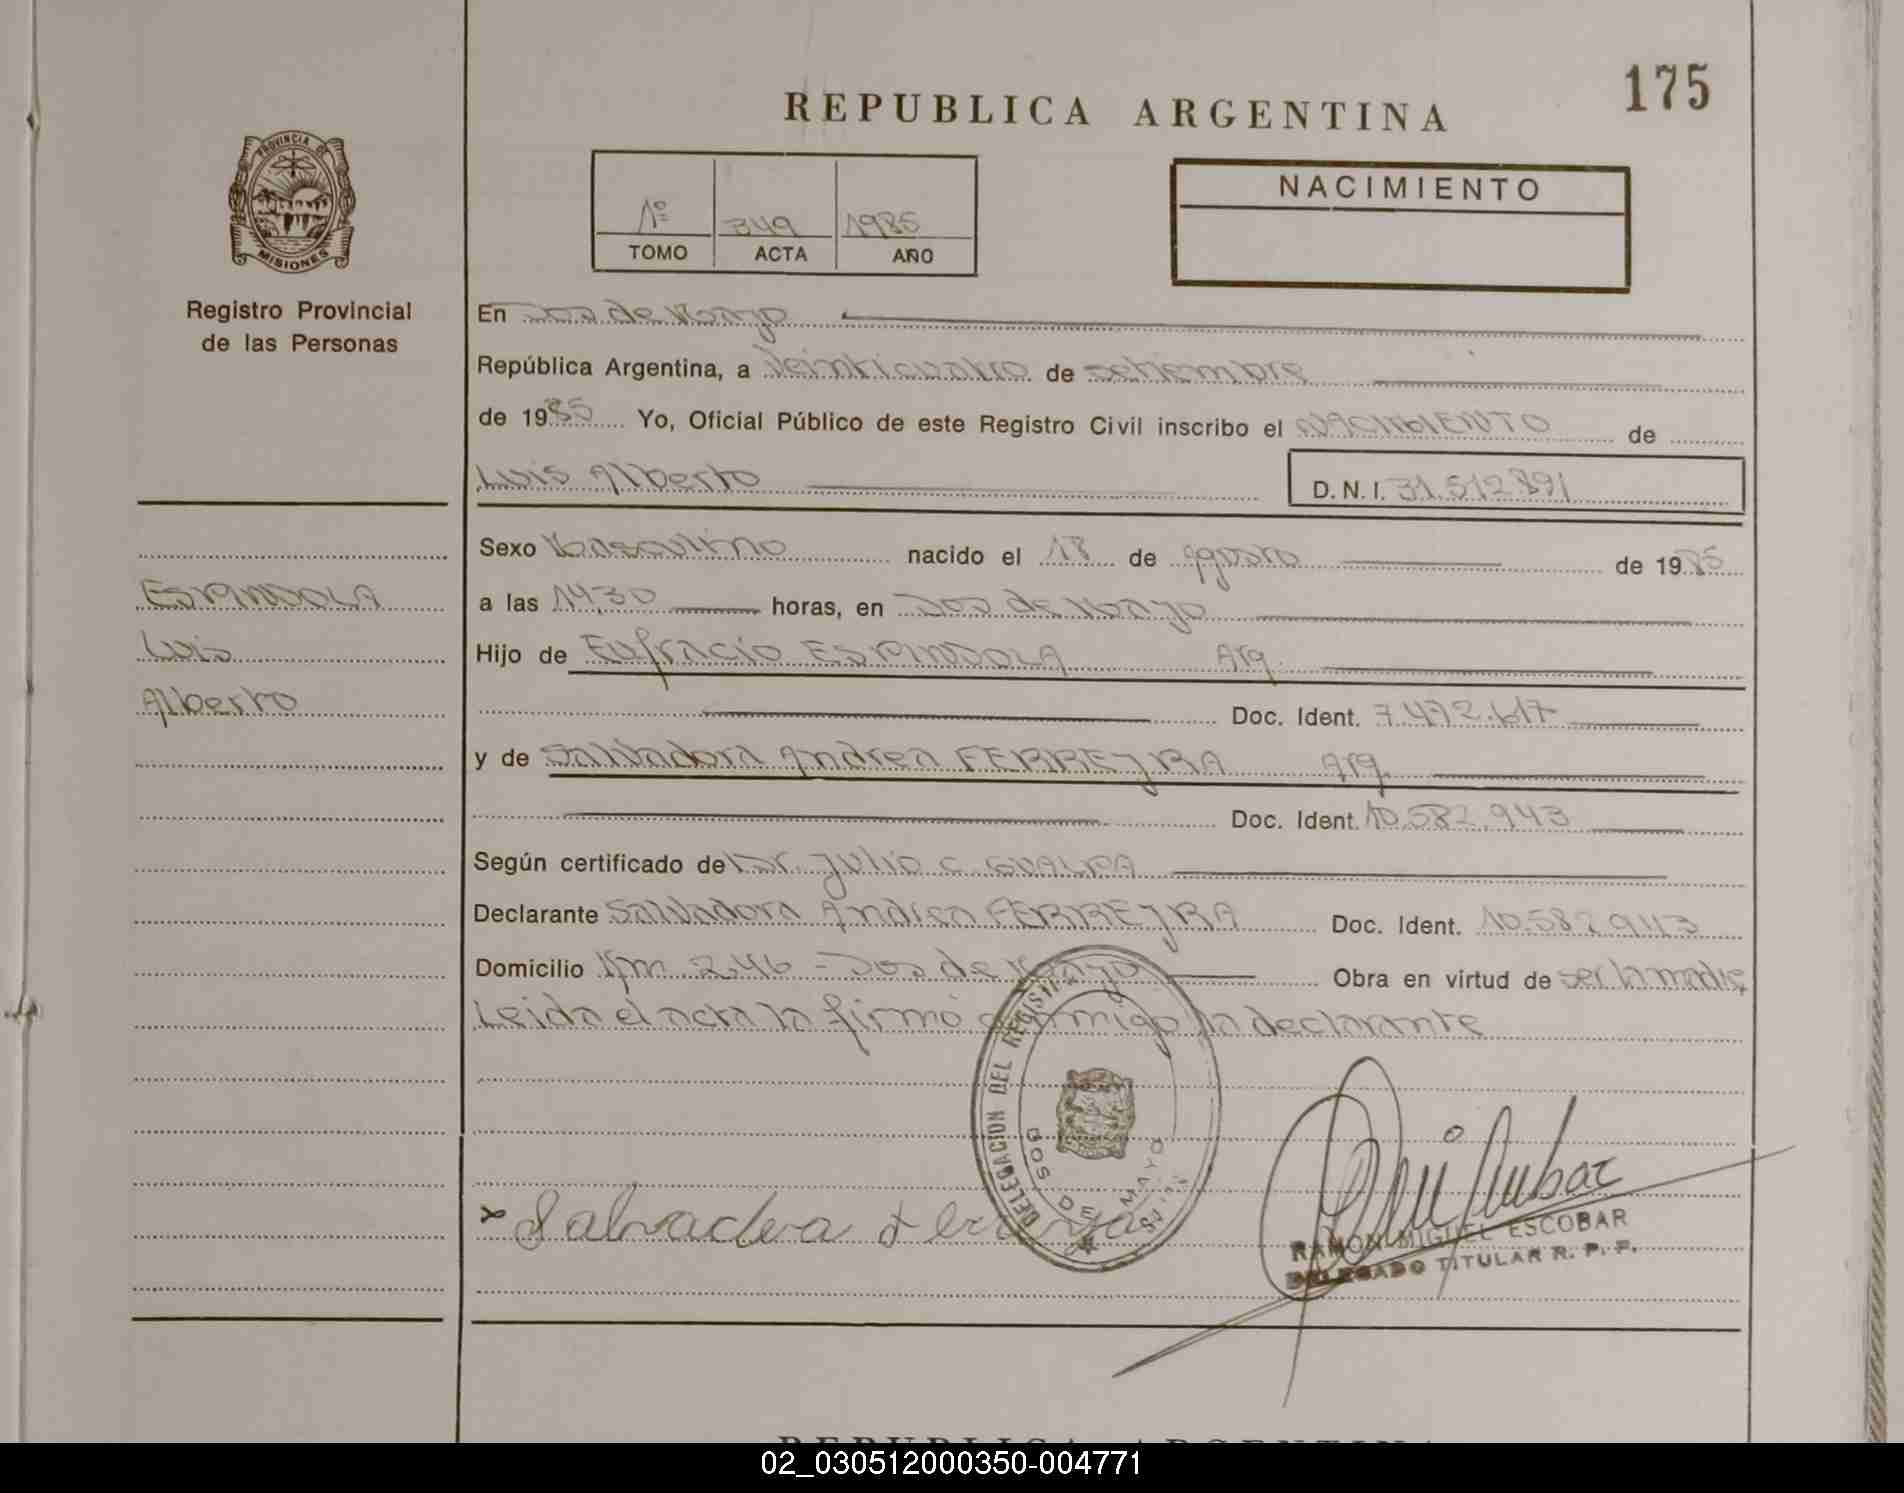 175
REPUBLICA ARGENTINA
PROVINCIA DE
MISIONES
Registro Provincial
de las Personas
1º 349 1985
TOMO ACTA AÑO
NACIMIENTO
En Dos de Mayo
República Argentina, a Veinticuatro de setiembre
de 1985 Yo, Oficial Público de este Registro Civil inscribo el NACIMIENTO de
Luis Alberto D.N.I. 31.512.891
Sexo Masculino nacido el 18 de Agosto de 1985
ESPINDOLA
Luis
Alberto
a las 14,30 horas, en Dos de Mayo
Hijo de Eufracio ESPINDOLA Arg.
Doc. Ident. 7.472.617
y de Salvadora Andrea FERREYRA Arg.
Doc. Ident. 10.582.943
Según certificado de Dr. Julio C. GUALPA
Declarante Salvadora Andrea FERREYRA Doc. Ident. 10.582.943
Domicilio Km 246 - Dos de Mayo Obra en virtud de ser la madre
Leida el acta la firmó conmigo la declarante
DELEGACION DEL REGISTRO
DOS DE MAYO
Salvadora Ferreyra
RAMON MIGUEL ESCOBAR
DELEGADO TITULAR R. P. P.
REPUBLICA ARGENTINA
02_030512000350-004771